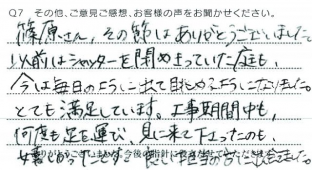 Q7 その他、ご意見ご感想、お客様の声をお聞かせください。
篠原さん、その節はありがとうございました。
以前はシャッターを閉め切っていた庭も、
今は毎日のように出て眺めるようになりました。
とても満足しています。工事期間中も、
何度も足を運び、見に来て下さったのも、
嬉しかったです。良い担当の方に出会えました。